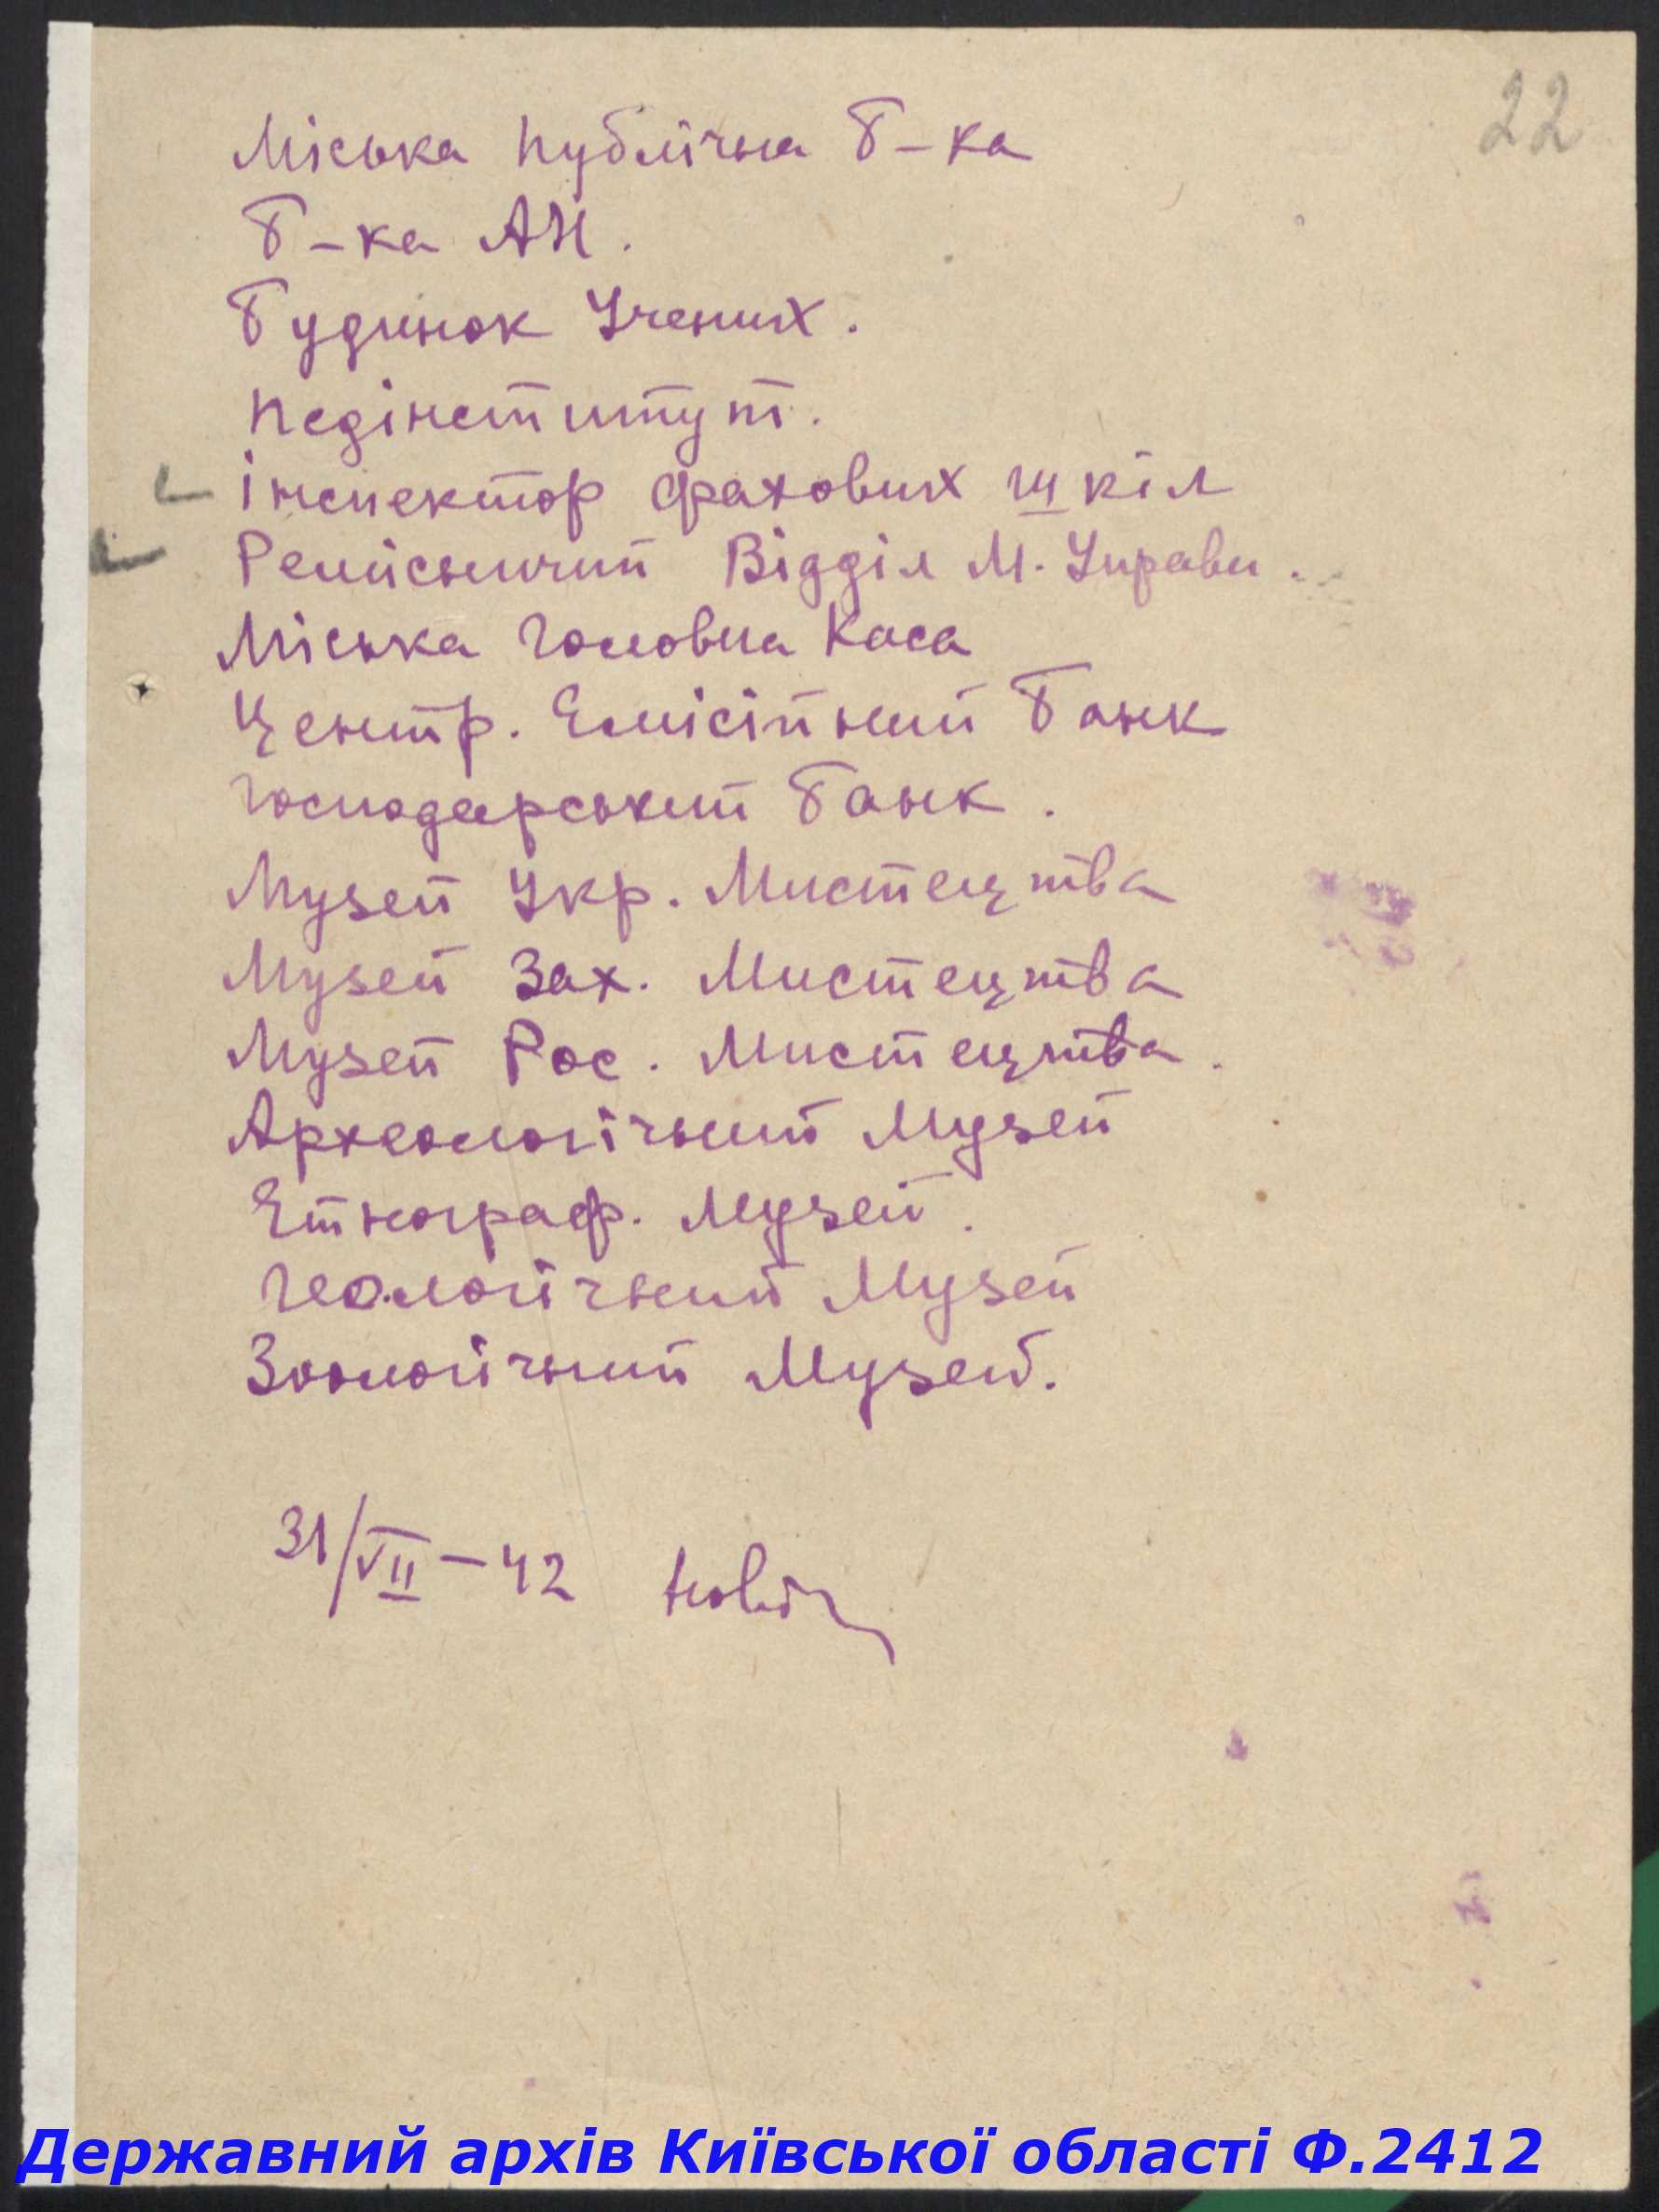 22
Міська публічна Б-ка
Б-ка АН.
Будинок Учених.
Педінститут.
Інспектор фахових шкіл
Ремісничий Відділ М. Управи.
Міська Головна Каса
Центр. Емісійний Банк
Господарський Банк.
Музей Укр. Мистецтва
Музей Зах. Мистецтва
Музей Рос. Мистецтва.
Археологічний Музей
Етнограф. Музей.
Геологічний Музей
Зоологічний Музей.
31/VII-42
Державний архів Київської області Ф.2412